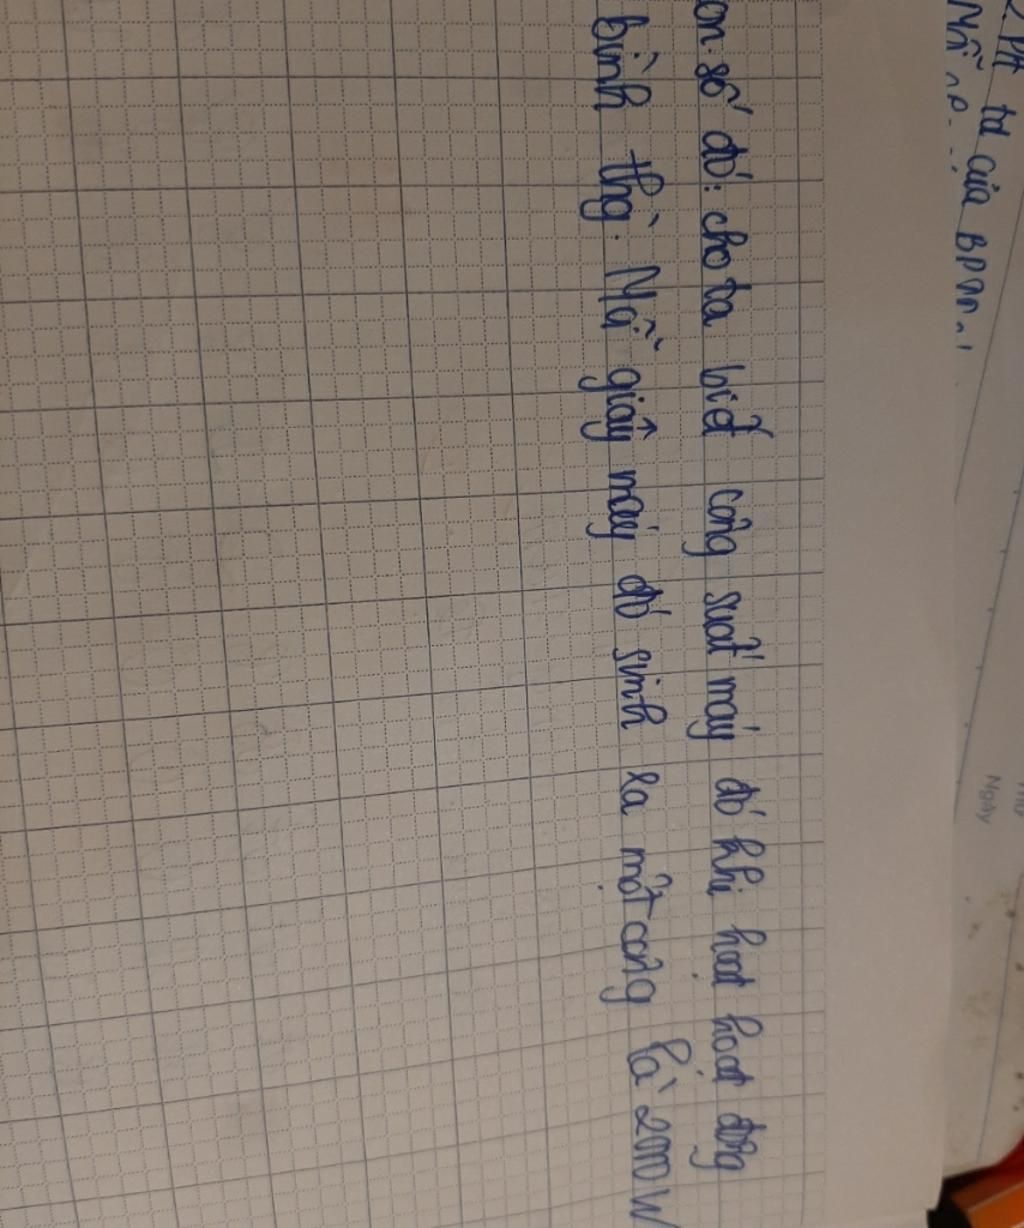 2. Pt tđ của BPMM !
Mỗi
on số đó: cho ta biết công suất máy đó khi hoạt hoạt động
bình thg. Mỗi giây máy đó sinh ra một công là 2000W
Ngày